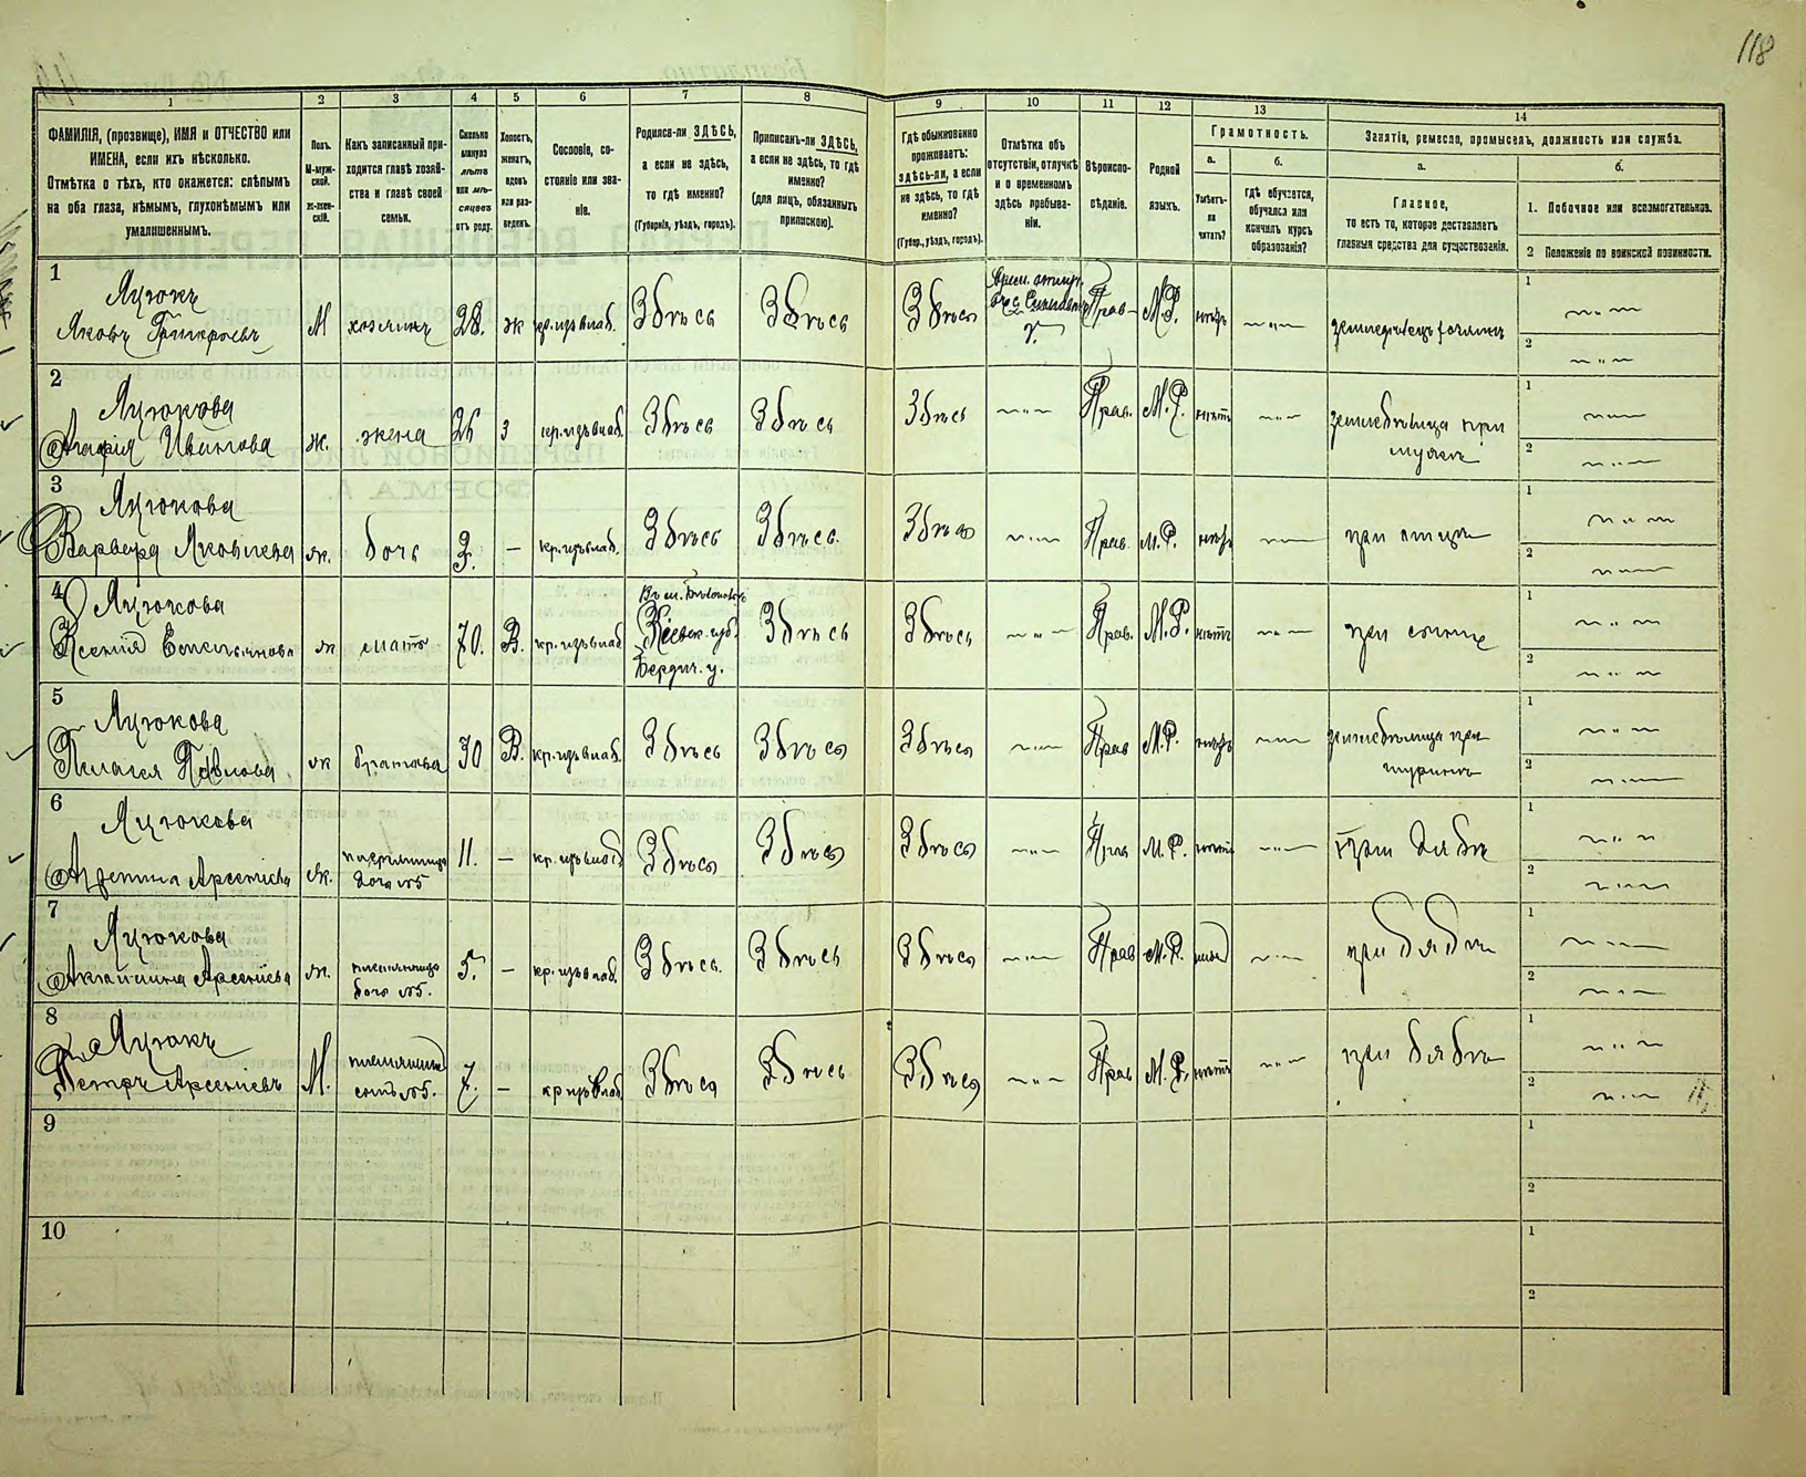 118
1 2 3 4 5 6 7 8 9 10 11 12 13 14
ФАМИЛІЯ, (прозвище), ИМЯ и ОТЧЕСТВО или
ИМЕНА, если ихъ нѣсколько.
Отмѣтка о тѣхъ, кто окажется: слѣпымъ
на оба глаза, нѣмымъ, глухонѣмымъ или
умалишеннымъ.
Полъ.
М-муж-
ской.
Ж-жен-
скій.
Какъ записанный при-
ходится главѣ хозяй-
ства и главѣ своей
семьи.
Сколько
минуло
лѣтъ
или мѣ-
сяцевъ
отъ роду.
Холостъ,
женатъ,
вдовъ
или раз-
веденъ.
Сословіе, со-
стояніе или зва-
ніе.
Родился-ли ЗДѢСЬ,
а если не здѣсь,
то гдѣ именно?
(Губернія, уѣздъ, городъ).
Приписанъ-ли ЗДѢСЬ,
а если не здѣсь, то гдѣ
именно?
(для лицъ, обязанныхъ
припискою).
Гдѣ обыкновенно
проживаетъ:
здѣсь-ли, а если
не здѣсь, то гдѣ
именно?
(Губер., уѣздъ, городъ).
Отмѣтка объ
отсутствіи, отлучкѣ
и о временномъ
здѣсь пребыва-
ніи.
Вѣроиспо-
вѣданіе.
Родной
языкъ.
Грамотность.
а.
Умѣетъ-
ли
читать?
б.
Гдѣ обучается,
обучался или
кончилъ курсъ
образованія?
Занятіе, ремесло, промыселъ, должность или служба.
а.
Главное,
то есть то, которое доставляетъ
главныя средства для существованія.
б.
1. Побочное или вспомогательное.
2 Положеніе по воинской повинности.
1
Яцюкъ
Яковъ
М хозяинъ 28. ж кр. изъ влад. Здѣсь Здѣсь Здѣсь
Прав. М.Р. нѣтъ земледѣлецъ хозяинъ
2
Яцюкова
Агафія Иванова
ж. жена 26 з кр. изъ влад. Здѣсь Здѣсь Здѣсь Прав. М.Р. нѣтъ земледѣлица при
мужѣ
3
Яцюкова
Варвара Яковлева ж. дочь 3. – кр. изъ влад. Здѣсь Здѣсь Здѣсь Прав. М.Р. нѣтъ при отцѣ
4
Яцюкова
Ксенія Емельянова ж мать 70. В. кр. изъ влад.
Кіевск. губ.
Бердич. у.
Здѣсь Здѣсь Прав. М.Р. нѣтъ при сынѣ
5
Яцюкова
Пелагея Павлова ж братова 30 В. кр. изъ влад. Здѣсь Здѣсь Здѣсь Прав М.Р. нѣтъ земледѣлица при
шуринѣ
6
Яцюкова
Арсеніева ж.
племянница
дочь №5
11. – кр. изъ влад. Здѣсь Здѣсь Здѣсь Прав М.Р. нѣтъ при дядѣ
7
Яцюкова
Арсеніева ж.
племянница
дочь №5.
5. – кр. изъ влад. Здѣсь Здѣсь Здѣсь Прав М.Р. при дядѣ
8
Яцюкъ
Петръ Арсеніевъ М.
племянникъ
сынъ №5.
7. – кр изъ влад. Здѣсь Здѣсь Здѣсь Прав М.Р. нѣтъ при дядѣ
9
10